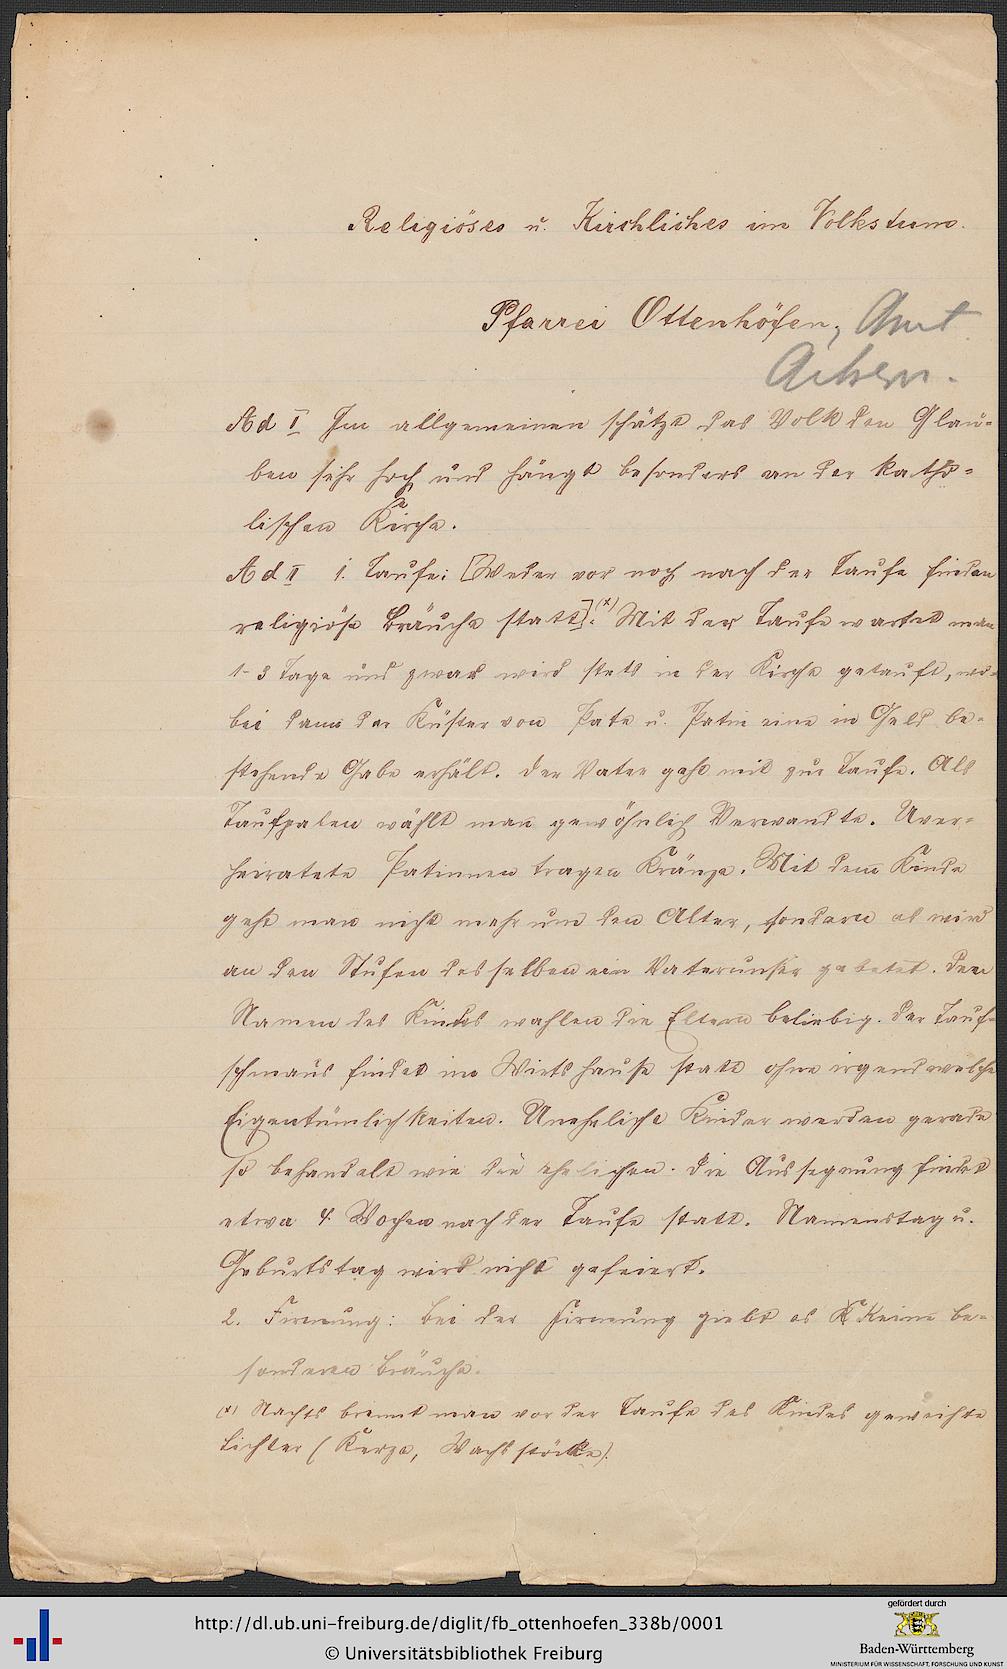 Religiöses u. Kirchliches im Volkstum.
Pfarrei Ottenhöfen, Amt
Achern.
Ad I Im allgemeinen schätzt das Volk den Glau-
ben sehr hoch und hängt besonders an der katho-
lischen Kirche.
Ad II 1. Taufe: [Weder vor noch nach der Taufe finden
religiöse Bräuche statt].(x) Mit der Taufe wartet man
1-3 Tage und zwar wird stets in der Kirche getauft, wo-
bei dann der Küster von Pate u. Patin eine in Geld be-
stehende Gabe erhält. Der Vater geht mit zur Taufe. Als
Taufpaten wählt man gewöhnlich Verwandte. Unver-
heiratete Patinnen tragen Kränze. Mit dem Kinde
geht man nicht mehr um den Altar, sondern es wird
an den Stufen desselben ein Vaterunser gebetet. Den
Namen des Kindes wählen die Eltern beliebig. Der Tauf-
schmaus findet im Wirtshause statt ohne irgendwelche
Eigentümlichkeiten. Uneheliche Kinder werden gerade
so behandelt wie die ehelichen. Die Aussegnung findet
etwa 4 Wochen nach der Taufe statt. Namenstag u.
Geburtstag wird nicht gefeiert.
2. Firmung: Bei der Firmung giebt es keine be-
sonderen Bräuche.
(x) Nachts brennt man vor der Taufe des Kindes geweihte
Lichter (Kerze, Wachsstöcke).
http://dl.ub.uni-freiburg.de/diglit/fb_ottenhoefen_338b/0001
© Universitätsbibliothek Freiburg
gefördert durch
Baden-Württemberg
MINISTERIUM FÜR WISSENSCHAFT, FORSCHUNG UND KUNST